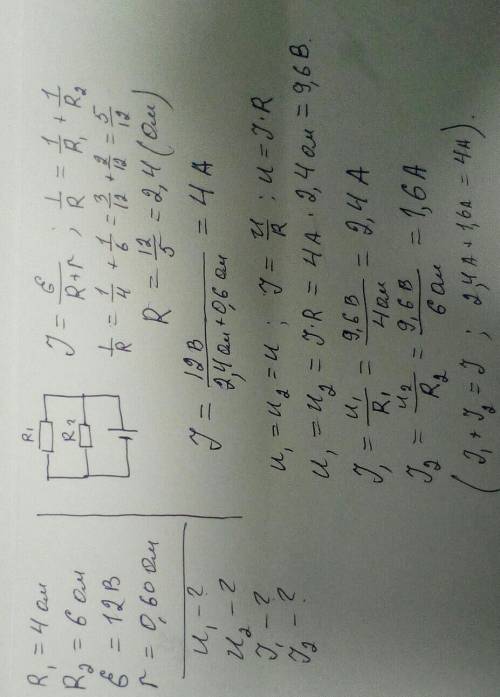 R₁ = 4 Ом
R₂ = 6 Ом
Ɛ = 12 В
r = 0,60 Ом
U₁ – ?
U₂ – ?
J₁ – ?
J₂ – ?
R₁
R₂
J = Ɛ/(R+r) ; 1/R = 1/R₁ + 1/R₂
1/R = 1/4 + 1/6 = 3/12 + 2/12 = 5/12
R = 12/5 = 2,4 (Ом)
J = 12 В/(2,4 Ом + 0,6 Ом) = 4 А
U₁ = U₂ = U ; J = U/R ; U = J·R
U₁ = U₂ = J·R = 4А · 2,4 Ом = 9,6 В.
J₁ = U₁/R₁ = 9,6 В/4 Ом = 2,4 А
J₂ = U₂/R₂ = 9,6 В/6 Ом = 1,6 А
(J₁ + J₂ = J ; 2,4 А + 1,6 А = 4 А).